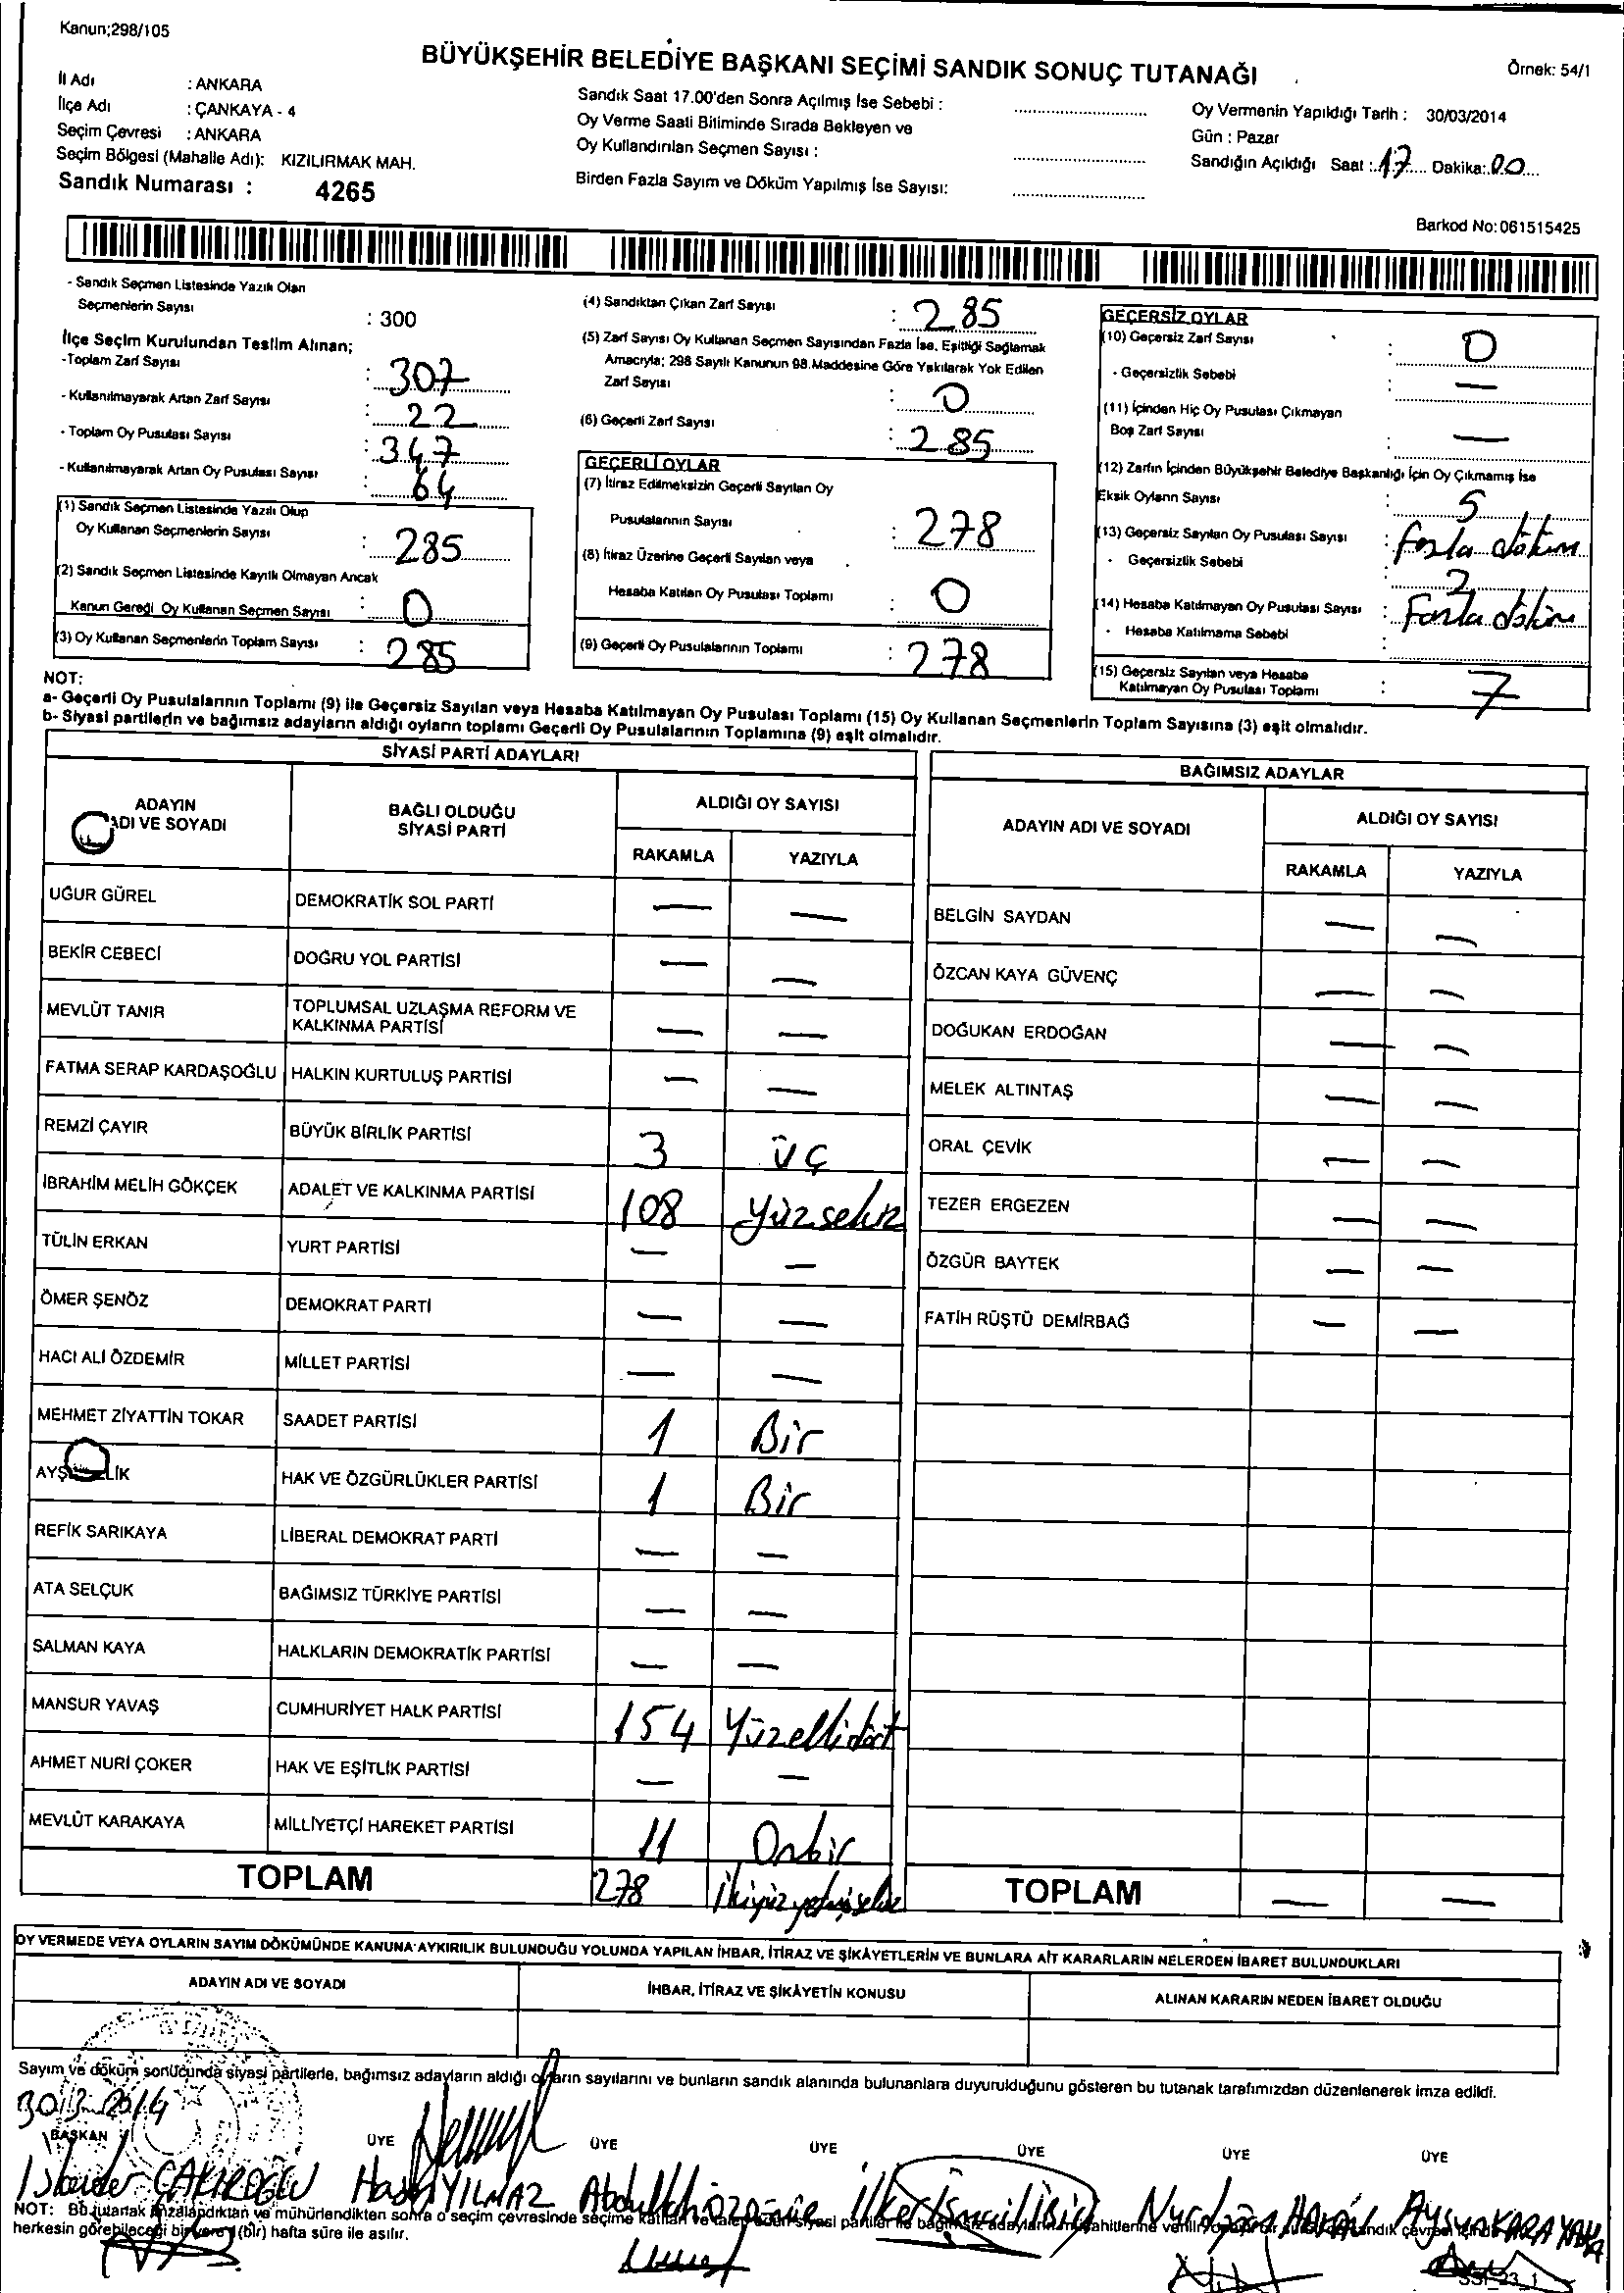 Kanun;298/105
BÜYÜKŞEHİR BELEDİYE BAŞKANI SEÇİMİ SANDIK SONUÇ TUTANAĞI
Örnek: 54/1
İl Adı : ANKARA
İlçe Adı : ÇANKAYA - 4
Seçim Çevresi : ANKARA
Seçim Bölgesi (Mahalle Adı): KIZILIRMAK MAH.
Sandık Numarası : 4265
Sandık Saat 17.00'den Sonra Açılmış İse Sebebi :
Oy Verme Saati Bitiminde Sırada Bekleyen ve
Oy Kullandırılan Seçmen Sayısı :
Birden Fazla Sayım ve Döküm Yapılmış İse Sayısı:
Oy Vermenin Yapıldığı Tarih : 30/03/2014
Gün : Pazar
Sandığın Açıldığı Saat : 17 Dakika: 00
Barkod No: 061515425
- Sandık Seçmen Listesinde Yazılı Olan
Seçmenlerin Sayısı : 300
İlçe Seçim Kurulundan Teslim Alınan;
-Toplam Zarf Sayısı : 307
- Kullanılmayarak Artan Zarf Sayısı : 22
- Toplam Oy Pusulası Sayısı : 347
- Kullanılmayarak Artan Oy Pusulası Sayısı : 64
(1) Sandık Seçmen Listesinde Yazılı Olup
Oy Kullanan Seçmenlerin Sayısı : 285
(2) Sandık Seçmen Listesinde Kayıtlı Olmayan Ancak
Kanun Gereği Oy Kullanan Seçmen Sayısı : 0
(3) Oy Kullanan Seçmenlerin Toplam Sayısı : 285
(4) Sandıktan Çıkan Zarf Sayısı : 285
(5) Zarf Sayısı Oy Kullanan Seçmen Sayısından Fazla İse, Eşitliği Sağlamak
Amacıyla; 298 Sayılı Kanunun 98.Maddesine Göre Yakılarak Yok Edilen
Zarf Sayısı : 0
(6) Geçerli Zarf Sayısı : 285
GEÇERLİ OYLAR
(7) İtiraz Edilmeksizin Geçerli Sayılan Oy
Pusulalarının Sayısı : 278
(8) İtiraz Üzerine Geçerli Sayılan veya
Hesaba Katılan Oy Pusulası Toplamı : 0
(9) Geçerli Oy Pusulalarının Toplamı : 278
GEÇERSİZ OYLAR
(10) Geçersiz Zarf Sayısı : 0
- Geçersizlik Sebebi : —
(11) İçinden Hiç Oy Pusulası Çıkmayan
Boş Zarf Sayısı : —
(12) Zarfın İçinden Büyükşehir Belediye Başkanlığı İçin Oy Çıkmamış İse
Eksik Oyların Sayısı : 5
(13) Geçersiz Sayılan Oy Pusulası Sayısı : fazla döküm
- Geçersizlik Sebebi : 2
(14) Hesaba Katılmayan Oy Pusulası Sayısı : Fazla döküm
- Hesaba Katılmama Sebebi :
(15) Geçersiz Sayılan veya Hesaba
Katılmayan Oy Pusulası Toplamı : 7
NOT:
a- Geçerli Oy Pusulalarının Toplamı (9) ile Geçersiz Sayılan veya Hesaba Katılmayan Oy Pusulası Toplamı (15) Oy Kullanan Seçmenlerin Toplam Sayısına (3) eşit olmalıdır.
b- Siyasi partilerin ve bağımsız adayların aldığı oyların toplamı Geçerli Oy Pusulalarının Toplamına (9) eşit olmalıdır.
SİYASİ PARTİ ADAYLARI
ADAYIN
ADI VE SOYADI
BAĞLI OLDUĞU
SİYASİ PARTİ
ALDIĞI OY SAYISI
RAKAMLA YAZIYLA
UĞUR GÜREL DEMOKRATİK SOL PARTİ — —
BEKİR CEBECİ DOĞRU YOL PARTİSİ — —
MEVLÜT TANIR TOPLUMSAL UZLAŞMA REFORM VE
KALKINMA PARTİSİ — —
FATMA SERAP KARDAŞOĞLU HALKIN KURTULUŞ PARTİSİ — —
REMZİ ÇAYIR BÜYÜK BİRLİK PARTİSİ 3 ÜÇ
İBRAHİM MELİH GÖKÇEK ADALET VE KALKINMA PARTİSİ 108 Yüzsekiz
TÜLİN ERKAN YURT PARTİSİ — —
ÖMER ŞENÖZ DEMOKRAT PARTİ — —
HACI ALİ ÖZDEMİR MİLLET PARTİSİ — —
MEHMET ZİYATTİN TOKAR SAADET PARTİSİ 1 Bir
AYŞ LİK HAK VE ÖZGÜRLÜKLER PARTİSİ 1 Bir
REFİK SARIKAYA LİBERAL DEMOKRAT PARTİ — —
ATA SELÇUK BAĞIMSIZ TÜRKİYE PARTİSİ — —
SALMAN KAYA HALKLARIN DEMOKRATİK PARTİSİ — —
MANSUR YAVAŞ CUMHURİYET HALK PARTİSİ 154 Yüzellidört
AHMET NURİ ÇOKER HAK VE EŞİTLİK PARTİSİ — —
MEVLÜT KARAKAYA MİLLİYETÇİ HAREKET PARTİSİ 11 Onbir
TOPLAM 278 İkiyüzyetmişsekiz
BAĞIMSIZ ADAYLAR
ADAYIN ADI VE SOYADI
ALDIĞI OY SAYISI
RAKAMLA YAZIYLA
BELGİN SAYDAN — —
ÖZCAN KAYA GÜVENÇ — —
DOĞUKAN ERDOĞAN — —
MELEK ALTINTAŞ — —
ORAL ÇEVİK — —
TEZER ERGEZEN — —
ÖZGÜR BAYTEK — —
FATİH RÜŞTÜ DEMİRBAĞ — —
TOPLAM — —
OY VERMEDE VEYA OYLARIN SAYIM DÖKÜMÜNDE KANUNA AYKIRILIK BULUNDUĞU YOLUNDA YAPILAN İHBAR, İTİRAZ VE ŞİKÂYETLERİN VE BUNLARA AİT KARARLARIN NELERDEN İBARET BULUNDUKLARI
ADAYIN ADI VE SOYADI
İHBAR, İTİRAZ VE ŞİKÂYETİN KONUSU
ALINAN KARARIN NEDEN İBARET OLDUĞU
Sayım ve döküm sonucunda siyasi partilerle, bağımsız adayların aldığı oyların sayılarını ve bunların sandık alanında bulunanlara duyurulduğunu gösteren bu tutanak tarafımızdan düzenlenerek imza edildi.
30/3/2014
BAŞKAN ÜYE ÜYE ÜYE ÜYE ÜYE ÜYE
İskender ÇAKIROĞLU Hasan YILMAZ Abdullah İlker İsmail Nurdoğan Aysun KARAKAYA
NOT: Bu tutanak imzalandıktan ve mühürlendikten sonra o seçim çevresinde seçime katılan ve talep eden siyasi partiler ile bağımsız adayların müşahitlerine verilir,
herkesin görebileceği bir yere 1(bir) hafta süre ile asılır.